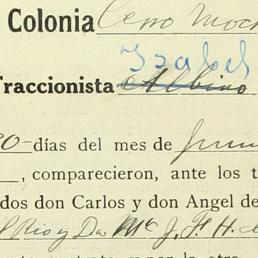 Colonia Cerro
Isabel
Fraccionista Albino
días del mes de Junio
, comparecieron, ante los t
dos don Carlos y don Angel de
Rio y Da. Ma. J. F. H. de